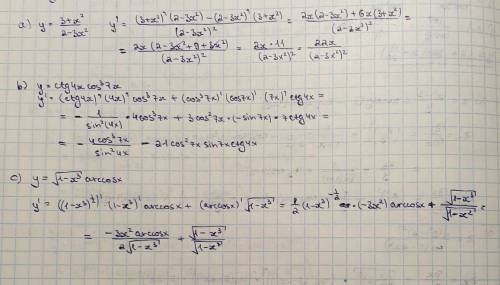 a) y = \frac{3+x²}{2-3x²} y' = \frac{(3+x²)'(2-3x²) - (2-3x²)'(3+x²)}{(2-3x²)²} = \frac{2x(2-3x²) + 6x(3+x²)}{(2-3x²)²} =
= \frac{2x(2-3x²+9+3x²)}{(2-3x²)²} = \frac{2x·11}{(2-3x²)²} = \frac{22x}{(2-3x²)²}
b) y = ctg4x cos³7x
y' = (ctg4x)' (4x)' cos³7x + (cos³7x)' (cos7x)' (7x)' ctg4x =
= - \frac{1}{sin²(4x)} · 4cos³7x + 3cos²7x · (-sin7x) · 7ctg4x =
= - \frac{4cos³7x}{sin²4x} - 21cos²7x sin7x ctg4x
c) y = √(1-x³) arccosx
y' = ((1-x³)^{\frac{1}{2}})' · (1-x³)' arccosx + (arccosx)' √(1-x³) = \frac{1}{2}(1-x³)^{-\frac{1}{2}} · (-3x²) arccosx + \frac{√(1-x³)}{√(1-x²)} =
= \frac{-3x² arccosx}{2√(1-x³)} + \frac{√(1-x³)}{√(1-x²)}